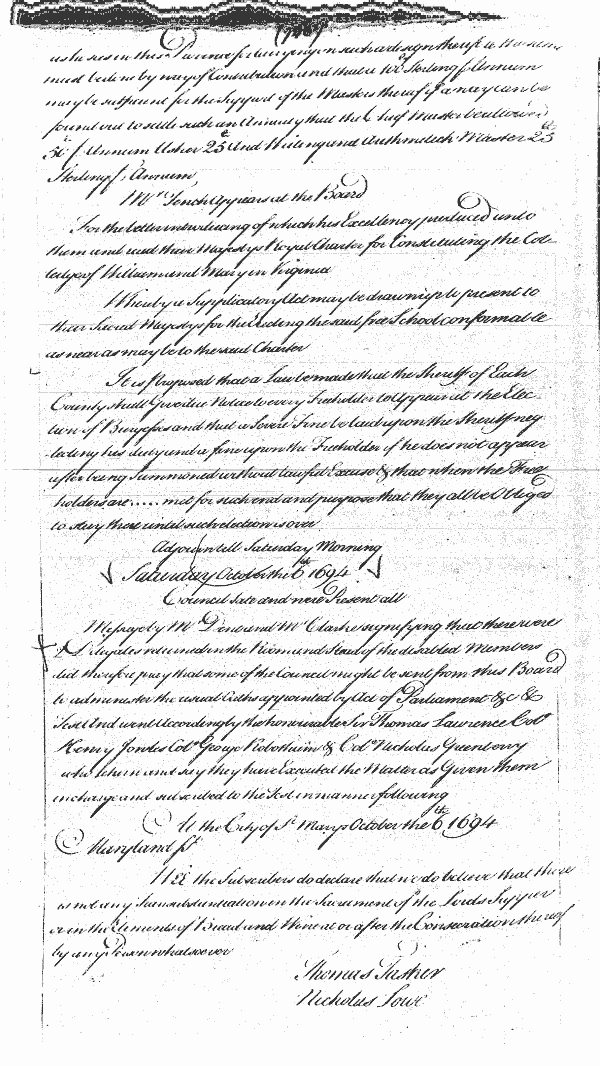 as he sees in this Province for carrying on such a design theref a the same
must be done by way of Contribution and that a 100£ Sterling p Annum
may be sufficient for the Support of the Masters thereof if a way can be
found out to settle such an Annuity that the Chief Master be allowed
50£ p Annum Usher 25£ And Writing and Arithmetick Master 25£
Sterling p Annum
Mr Tench Appears at the Board
For the better introducing of which his Excellency produced unto
them and read their Majestys Royal Charter for Constituting the Col-
ledge of William and Mary in Virginia
Whereby a Supplicatory Act may be drawn up to present to
their Sacred Majestys for the Erecting the said free School conformable
as near as may be to the said Charter
It is Proposed that a Law be made that the Sheriff of Each
County shall Give due Notice to every Freeholder to Appear at the Elec-
tion of Burgesses and that a Severe Fine be laid upon the Sheriff neg-
lecting his duty and a fine upon the Freeholder if he does not appear
after being Summoned without lawfull Excuse & that when the Free
holders are ..... met for such end and purpose that they all be Obliged
to stay there until such election is over
Adjourn till Saturday Morning
Saturday October the 6th 1694
Council Sate and were Present all
Message by Mr Dent and Mr Clarke signifying that there were
2 Delegates returned in the Room and Stead of the disabled Members
did therefore pray that some of the Council might be sent from this Board
to administer the usual Oaths appointed by Act of Parliament &c &
Test And went Accordingly the honourable Sir Thomas Lawrence Colo
Henry Jowles Colo George Robotham & Colo Nicholas Greenberry
who return and say they have Executed the Matter as Given them
in charge and subscribed to the Test in manner following
At the City of St Marys October the 6th 1694
Maryland ss
Wee the Subscribers do declare that we do believe that there
is not any Transubstantiation in the Sacrament of the Lords Supper
or in the Elements of Bread and Wine at or after the Consecration thereof
by any Person whatsoever
Thomas Tasker
Nicholas Lowe